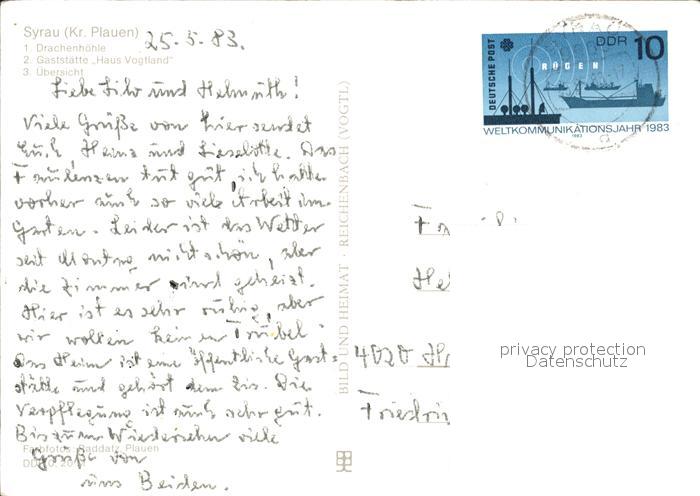 Syrau (Kr. Plauen)
1. Drachenhöhle
2. Gaststätte „Haus Vogtland"
3. Übersicht
25.5.83.
Liebe Lilo und Helmuth!
Viele Grüße von hier sendet
Euch, Heinz und Lieselotte. Das
Faulenzen tut gut, ich hatte
vorher auch so viele Arbeit im
Garten. Leider ist das Wetter
seit Montag nicht schön, aber
die Zimmer sind geheizt.
Hier ist es sehr ruhig, aber
wir wollten keinen Trubel.
Das Heim ist eine öffentliche Gast=
stätte und gehört dem
Die
Verpflegung ist auch sehr gut.
Bis zum Wiedersehn viele
Grüße von
uns Beiden.
Farbfotos: Raddatz, Plauen
BILD UND HEIMAT · REICHENBACH (VOGTL)
DEUTSCHE POST
DDR 10
RÜGEN
WELTKOMMUNIKATIONSJAHR 1983
1983
Fa
He
4020
Friedri
privacy protection
Datenschutz